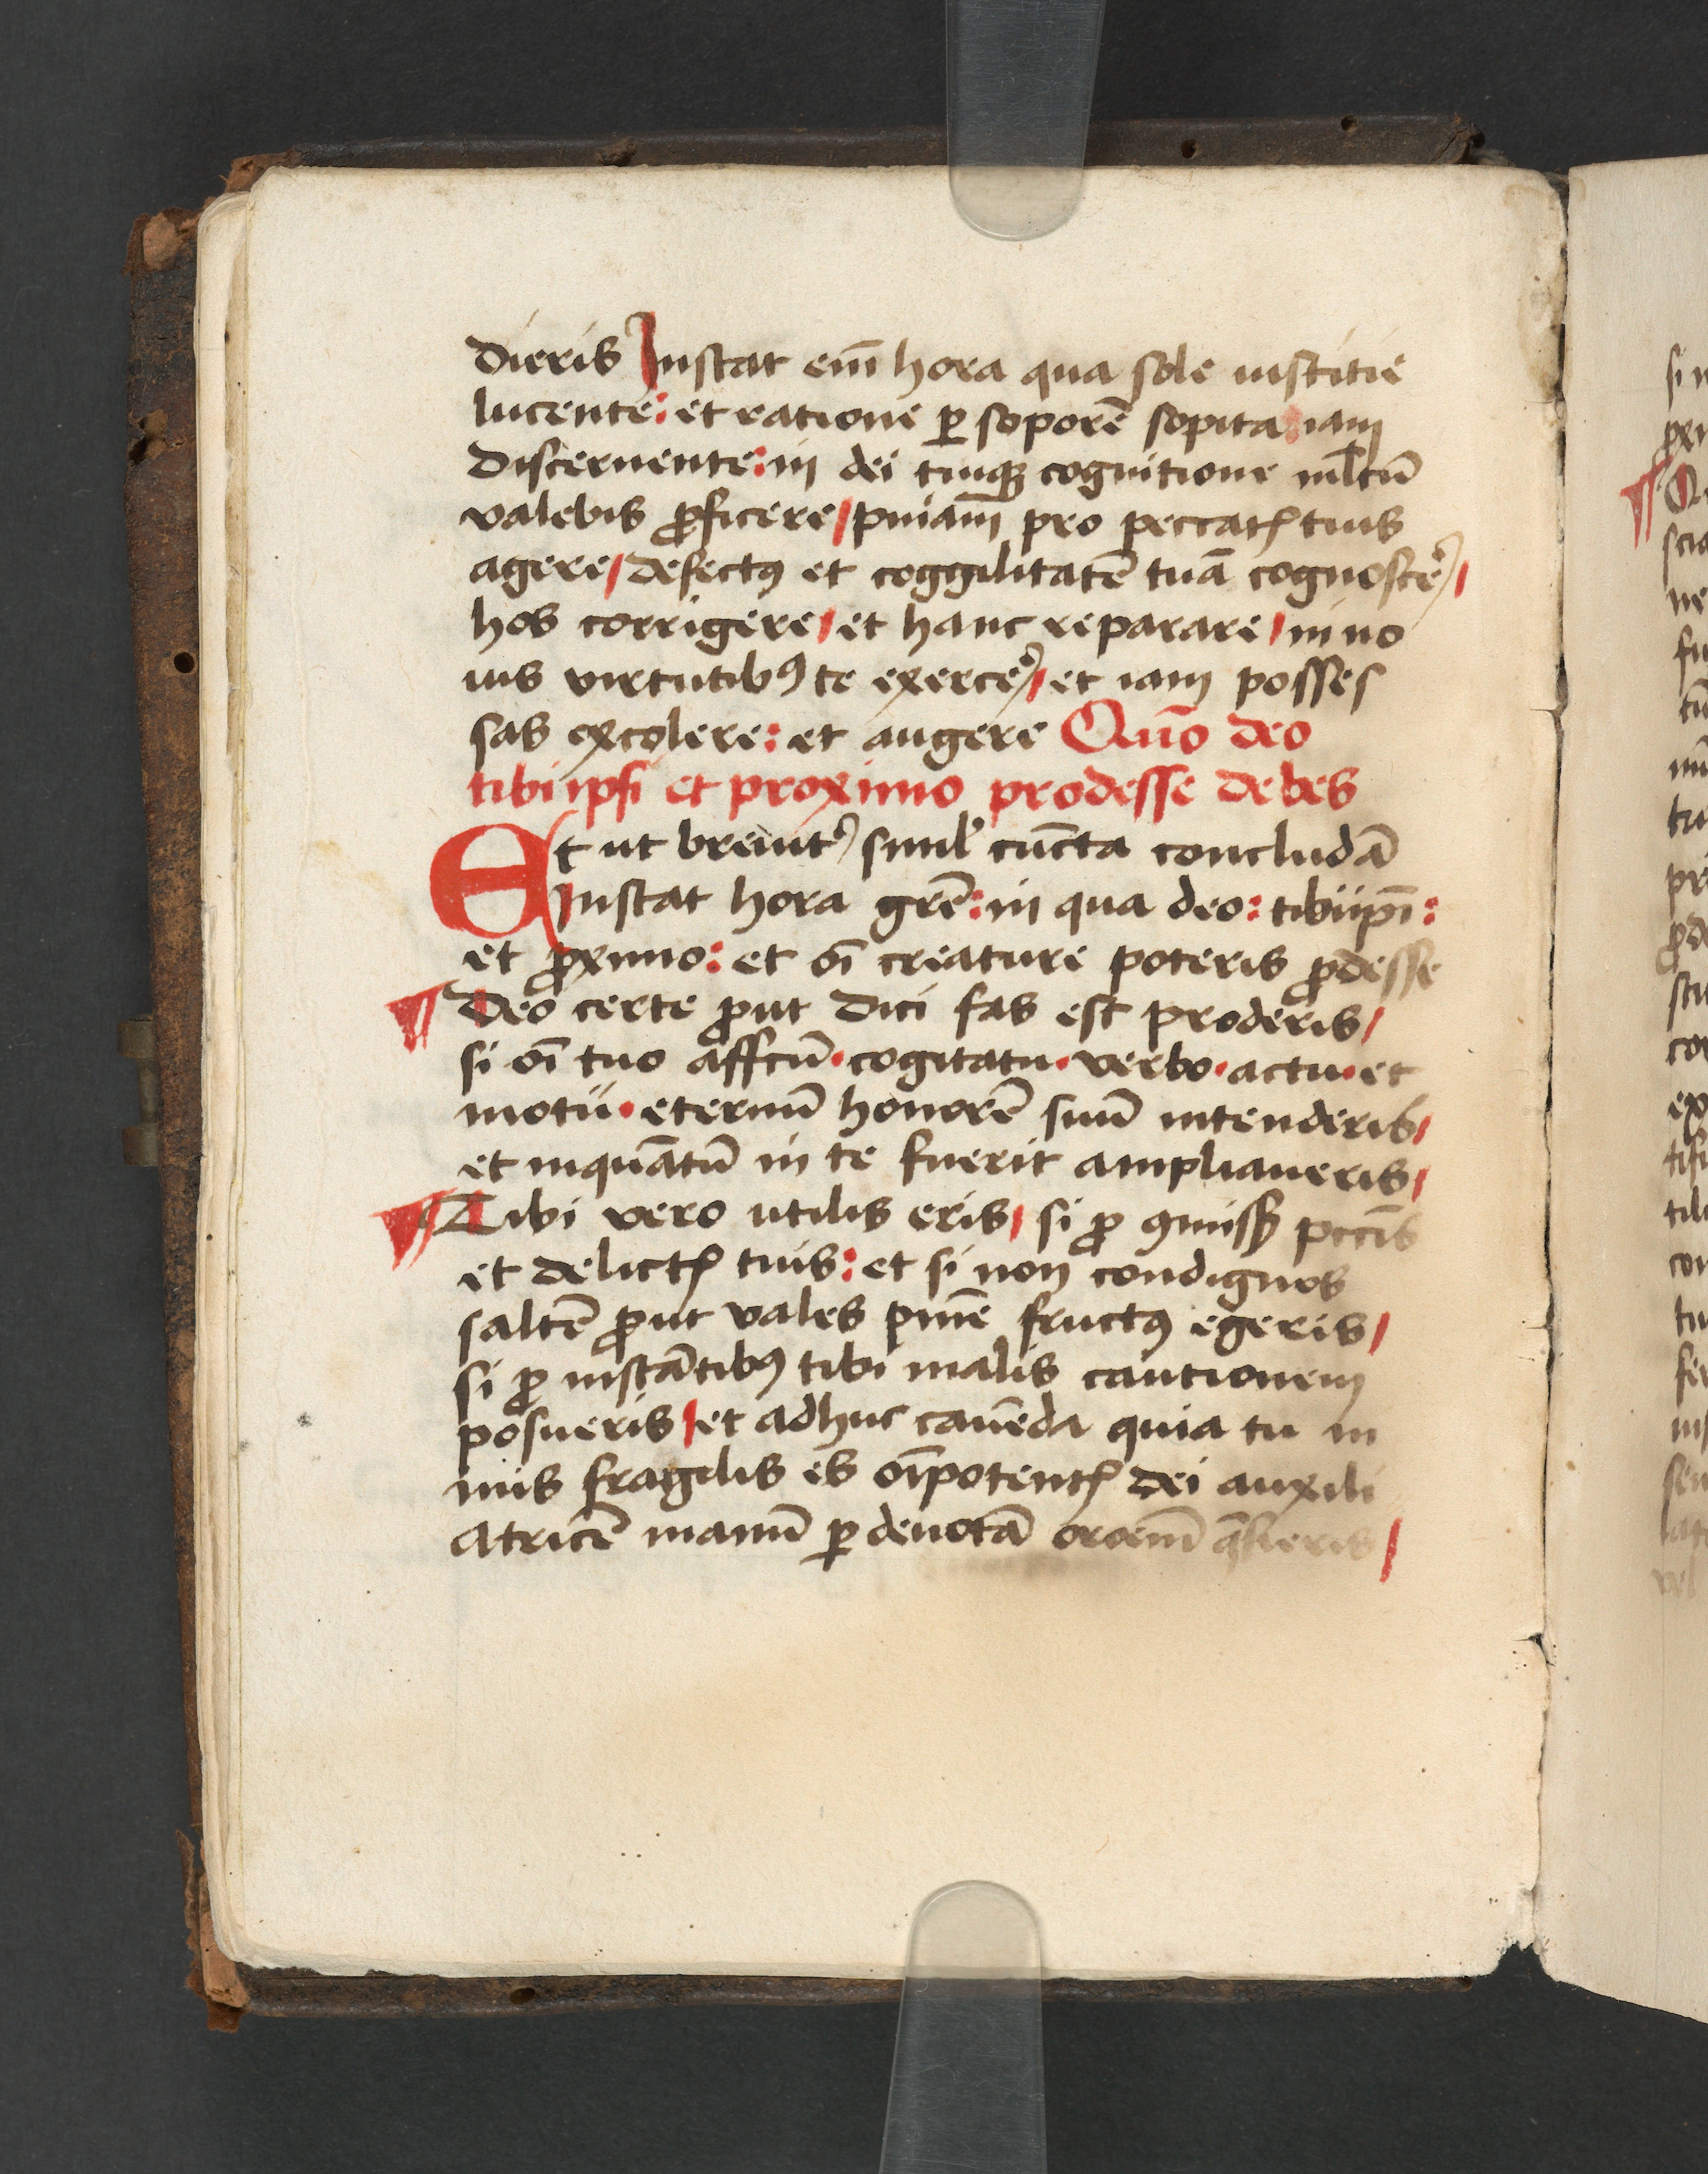 dieris Instat em̄ hora qua sole iustitie
lucente: et ratione ꝑ soporē sopita: iam
discernente: in dei tuiqꝫ cognitione ml̄tū
valebis ꝓficere / pniam̄ pro peccatꝭ tuis
agere / defectꝯ et coggilitatē tuā cognoscer̉ /
hos corrigere / et hanc reparare / in no
uis virtutibꝯ te exercer̉ / et iam posses
sas excolere: et augere Quō deo
tibiipsi et proximo prodesse debes
Et ut breuit̉ simul̉ cūcta concludā
Instat hora gr̄e: in qua deo: tibiip̄i:
et ꝓximo: et oī creature poteris ꝓdesse
¶ Deo certe ꝓut dici fas est proderis /
si oī tuo affcū · cogitatu · verbo · actu · et
motu · eternū honorē suū intenderis /
et inquātū in te fuerit ampliaueris /
¶ Tibi vero utilis eris / si ꝓ ꝯmissꝭ pccīs
et delictꝭ tuis: et si non condignos
saltē ꝓut vales pnīe fructꝯ egeris /
si ꝓ instātibꝯ tibi malis cautionem
posueris / et adhuc cauēda quia tu in
miis fragilis es oīpotentꝭ dei auxili
atricē manū ꝑ deuotā oroem̄ q̄sieris /